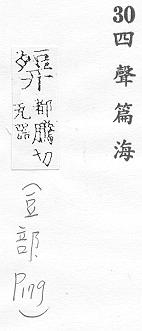 30四聲篇海
都騰切
瓦器
(豆部 Ping)